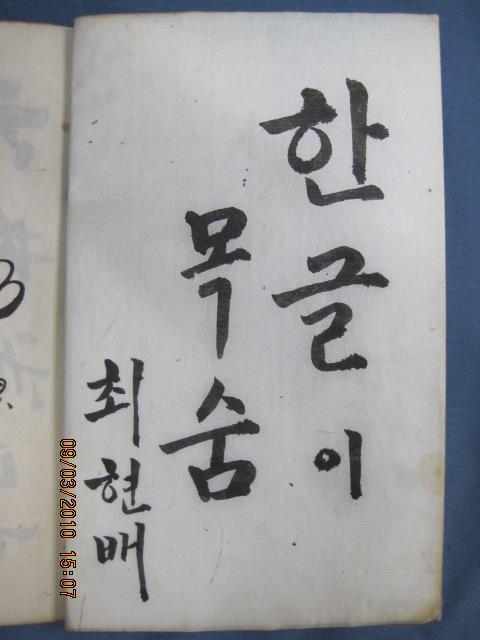 한글이
목숨
최현배
09/03/2010 15:07